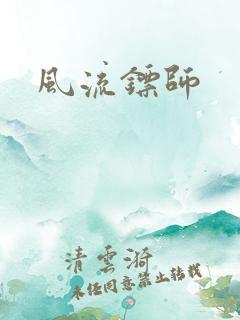 風流鏢師
清雲漪
未經同意禁止轉載